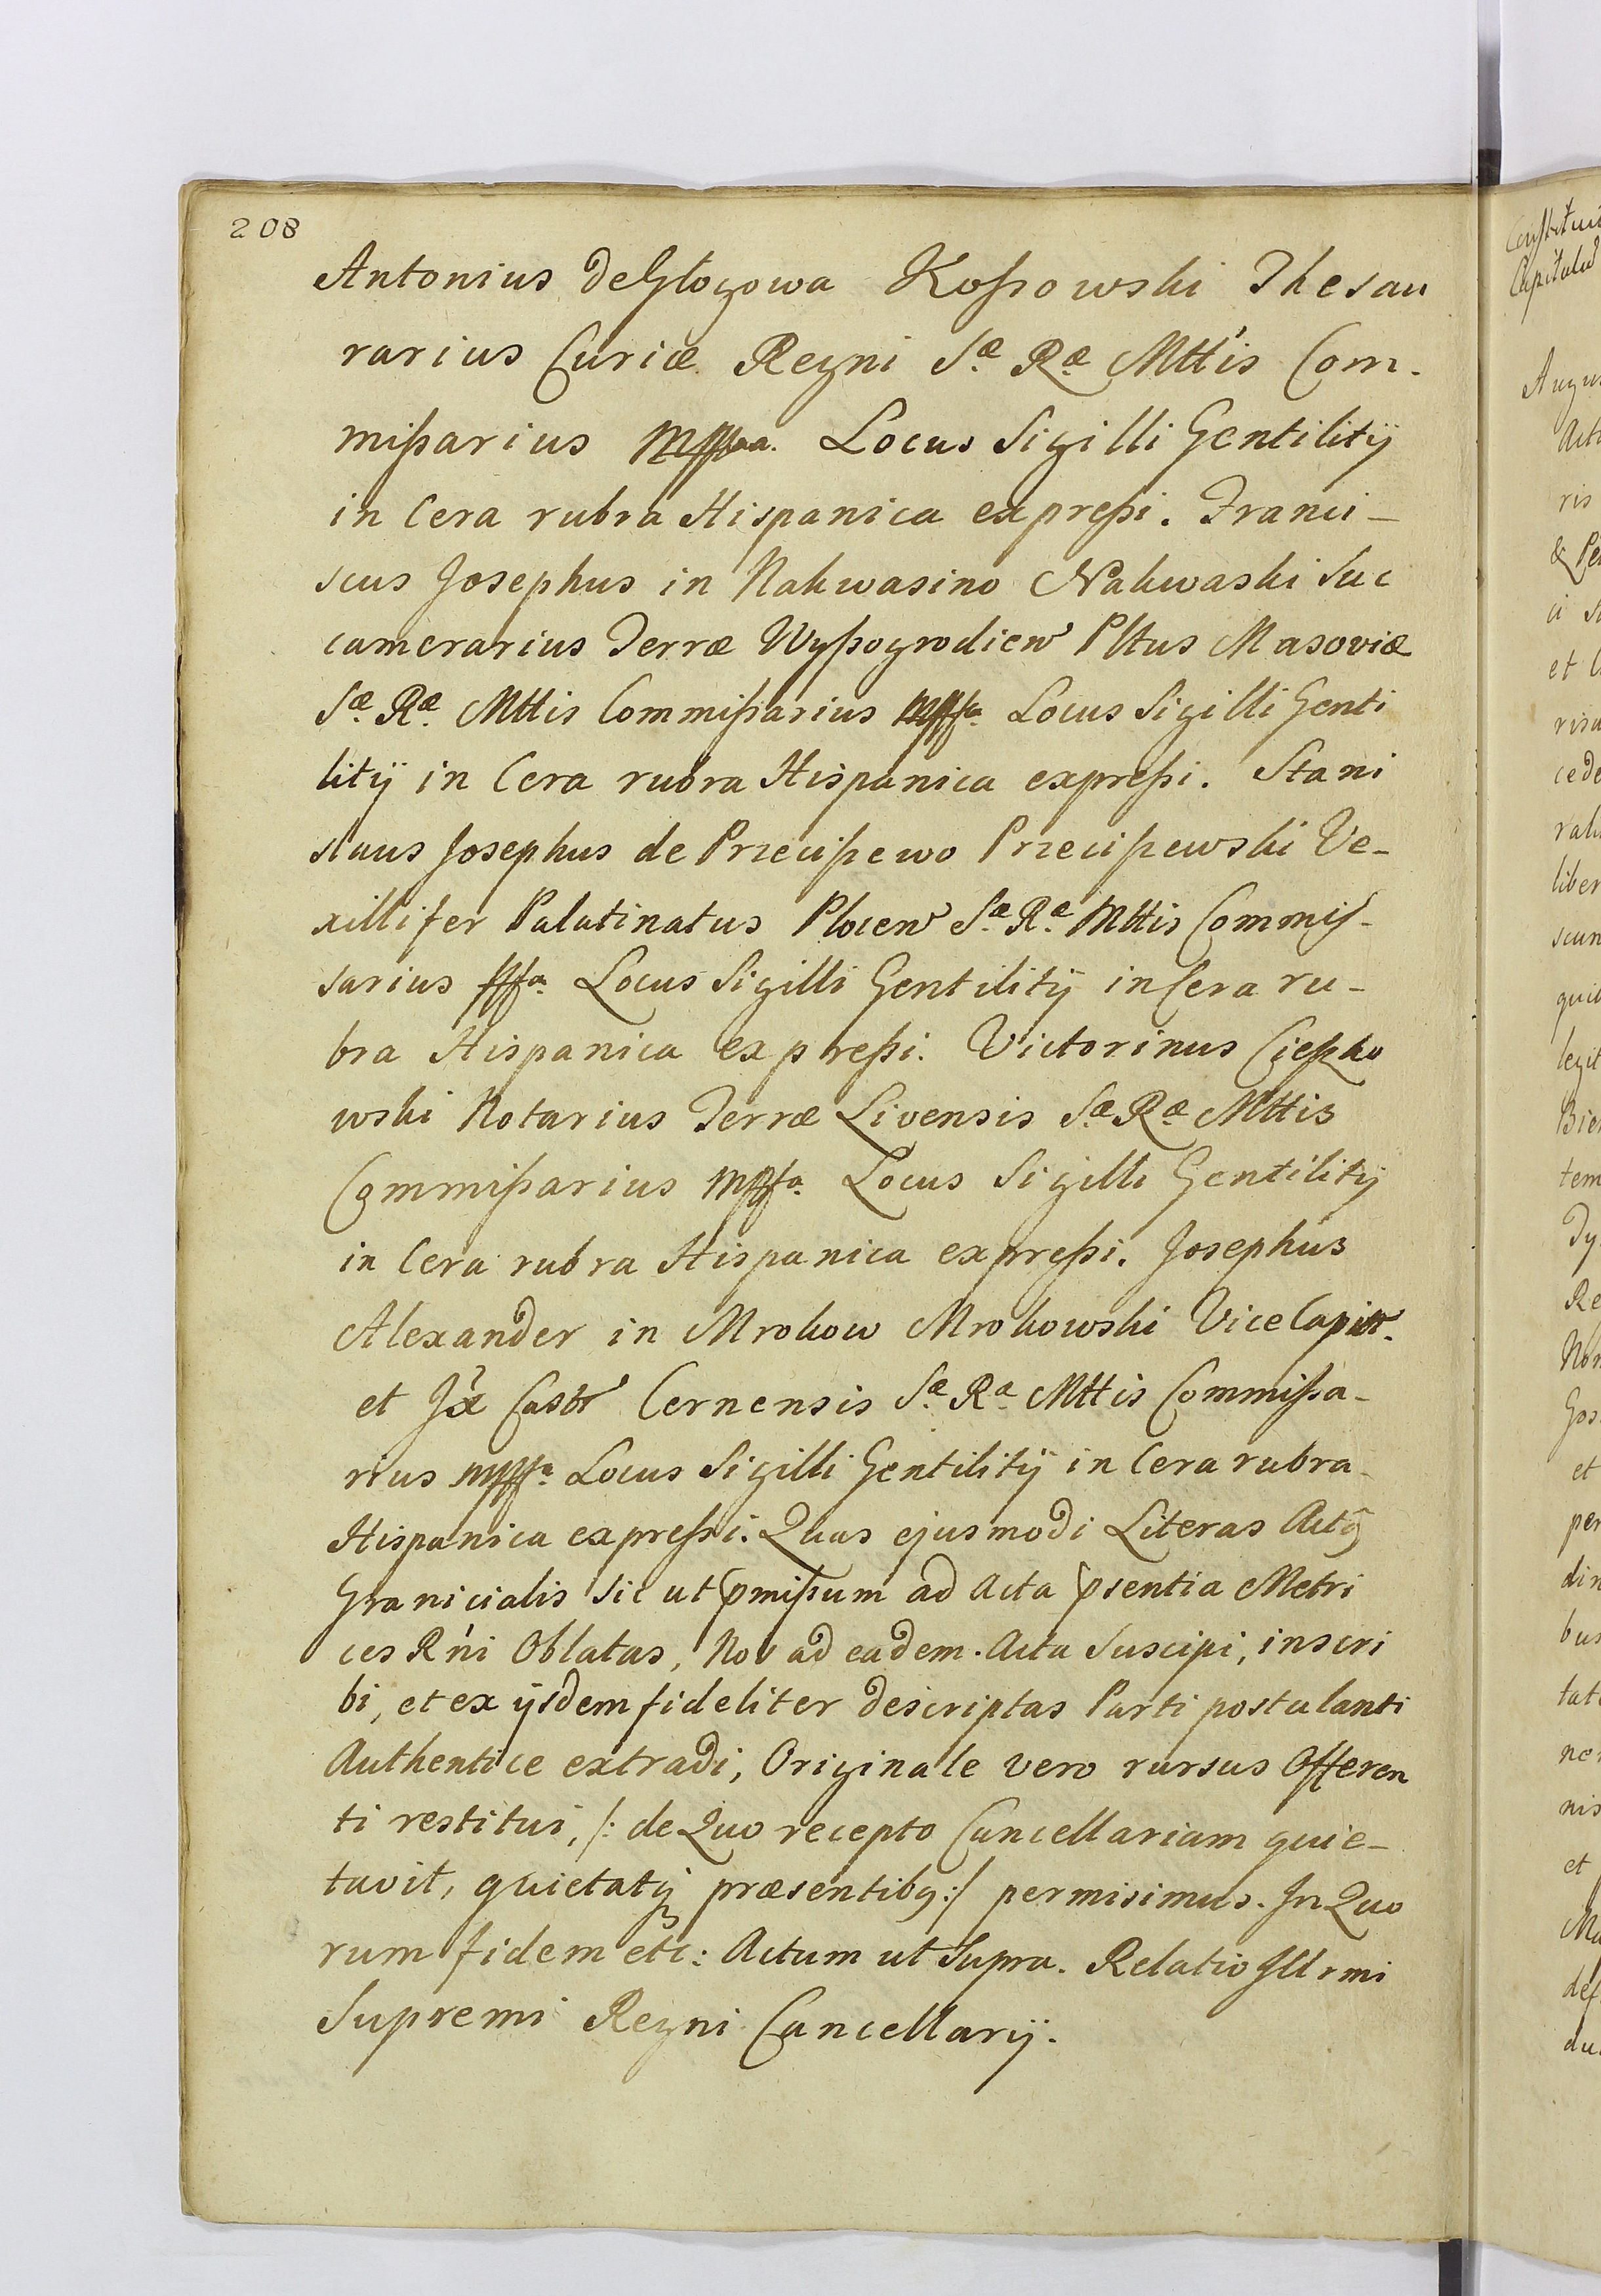 208
Antonius de Głogowa Koßowski Thesau
rarius Curiæ Regni Sæ Ræ Mttis Com-
mißarius mppa. Locus Sigilli Gentilitij
in Cera rubra Hispanica expreßi. Franci-
scus Josephus in Nakwasino Nakwaski Suc
camerarius Terræ Wyßogrodien Pltus Masoviæ
Sæ Ræ Mttis Commißarius mppa Locus Sigilli Genti
litij in Cera rubra Hispanica expreßi. Stani
slaus Josephus de Przecißewo Przecißewski Ve-
xillifer Palatinatus Plocen Sæ Ræ Mttis Commis-
sarius mppa Locus Sigilli Gentilitij in Cera ru-
bra Hispanica expreßi. Victorinus Cießko
wski Notarius Terræ Livensis Sæ Ræ Mttis
Commißarius mppa Locus Sigilli Gentilitij
in Cera rubra Hispanica expreßi. Josephus
Alexander in Mrokow Mrokowski Vice Capitt.
et Jx Castr Cernensis Sæ Ra Mttis Commißa-
rius mppa Locus Sigilli Gentilitij in Cera rubra
Hispanica expreßi. Quas ejusmodi Literas Actq
Granicialis sic ut pmißum ad Acta psentia Metri
ces Rni Oblatas, Nos ad eadem Acta Suscipi, inscri
bi, et ex ijsdem fideliter descriptas Parti postulanti
Authentice extradi, Originale vero rursus Offeren
ti restitui, /: de Quo recepto Cancellariam quie-
tavit, quietatq præsentibq :/ permisimus. In Quo
rum fidem etc: Actum ut Supra. Relatio Illrmi
Supremi Regni Cancellarij.
Capitulu
Augus
Acti
ris
et
cede
liber
scun
legit
tem
et
per
din
bus
nis
et